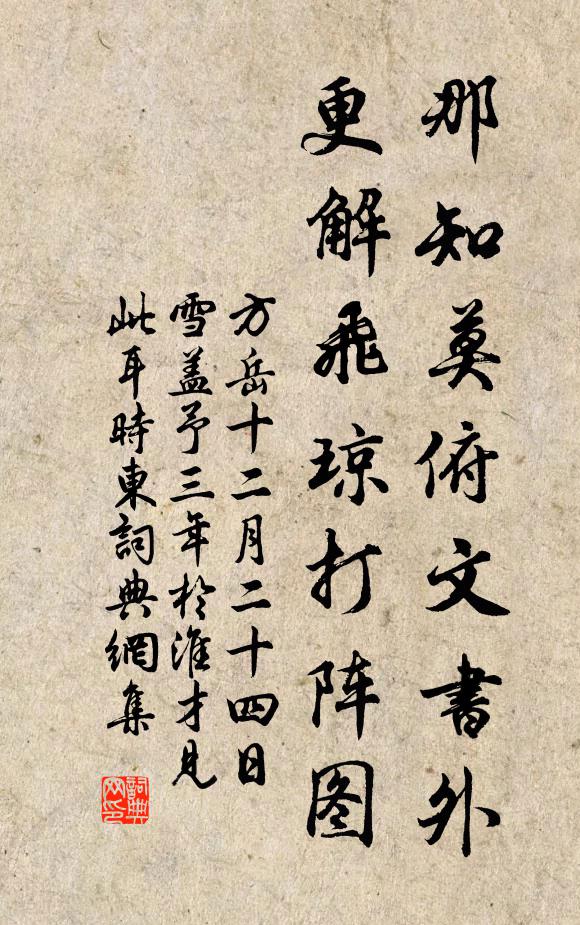 那知莫俯文書外
更解飛琼打阵图
方岳十二月二十四日
雪盖予三年於淮才見
此耳時東詞典網集
詞典
网印